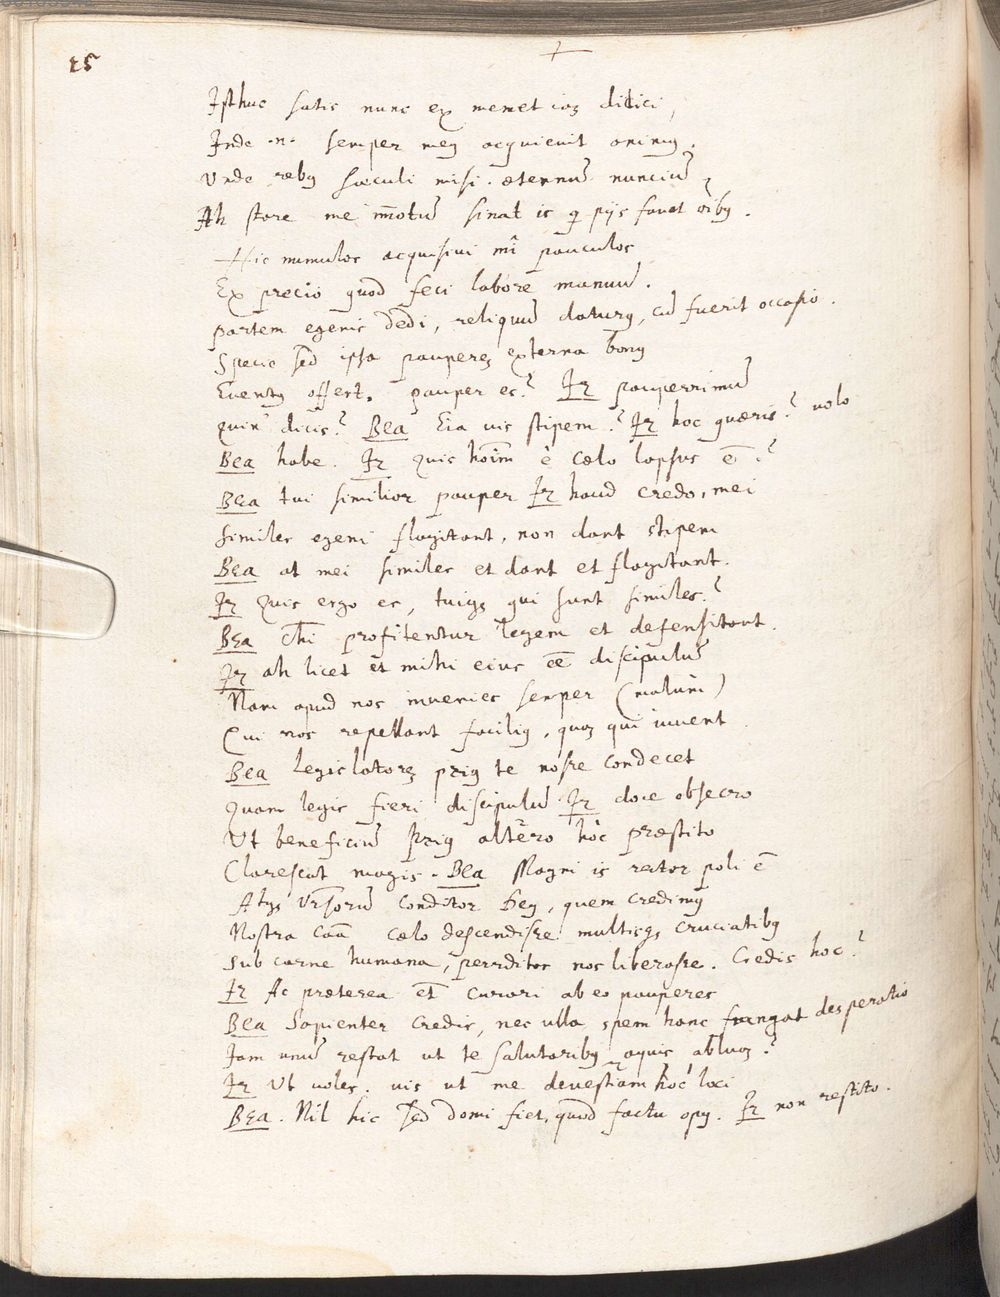 25
Isthuc satis nunc ex memet ioz didici,
Inde .n. semper meg acquievit animg.
Unde rebg sæculi misi æternū nunciū,
Ah stare me imotū sinat is q pijs favet oibg.
Hic numulos acquisivi mî pauculos
Ex precio quod feci labore manuū.
partem egenis dedi, reliquū daturg, cū fuerit occasio.
Specie sed ipsa pauperez externa bong
Eventg offert. pauper es? Ir pauperrimū
quin dicis? Bea Eia vis stipem? Ir hoc quæris? volo
Bea habe. Ir Quis hoīm è cælo lapsus ē?
Bea tui similior pauper Ir haud credo, mei
Similes egeni flagitant, non dant stipem
Bea at mei similes et dant et flagitant.
Ir Quis ergo es, tuiqz qui sunt similes?
Bea Chi profitentur legem et defensitant.
Ir ah licet et mihi eius eē discipulū
Nam apud nos invenies semper (malum)
Qui nos repellant facilig, quaz qui iuvent
Bea Legislatorez prig te nosse condecet
Quam legis fieri discipulū Ir doce obsecro
Ut beneficiū prig altero hôc præstito
Clarescat magis. Bea Magni is rector poli ē
Atqz Ursorū conditor Deg, quem credimg
Nostra caā cælo descendisse multisqz cruciatibg
Sub carne humana, perditos nos liberasse. Credis hoc?
Ir Ac præterea et curari ab eo pauperes
Bea Sapienter credis, nec ulla spem hanc frangat desperatio
Iam unū restat ut te salutaribg aquis abluaz?
Ir Ut voles. vis ut me devestiam hoc loci
Bea. Nil hic sed domi fiet, quod factu opg. Ir non restito.